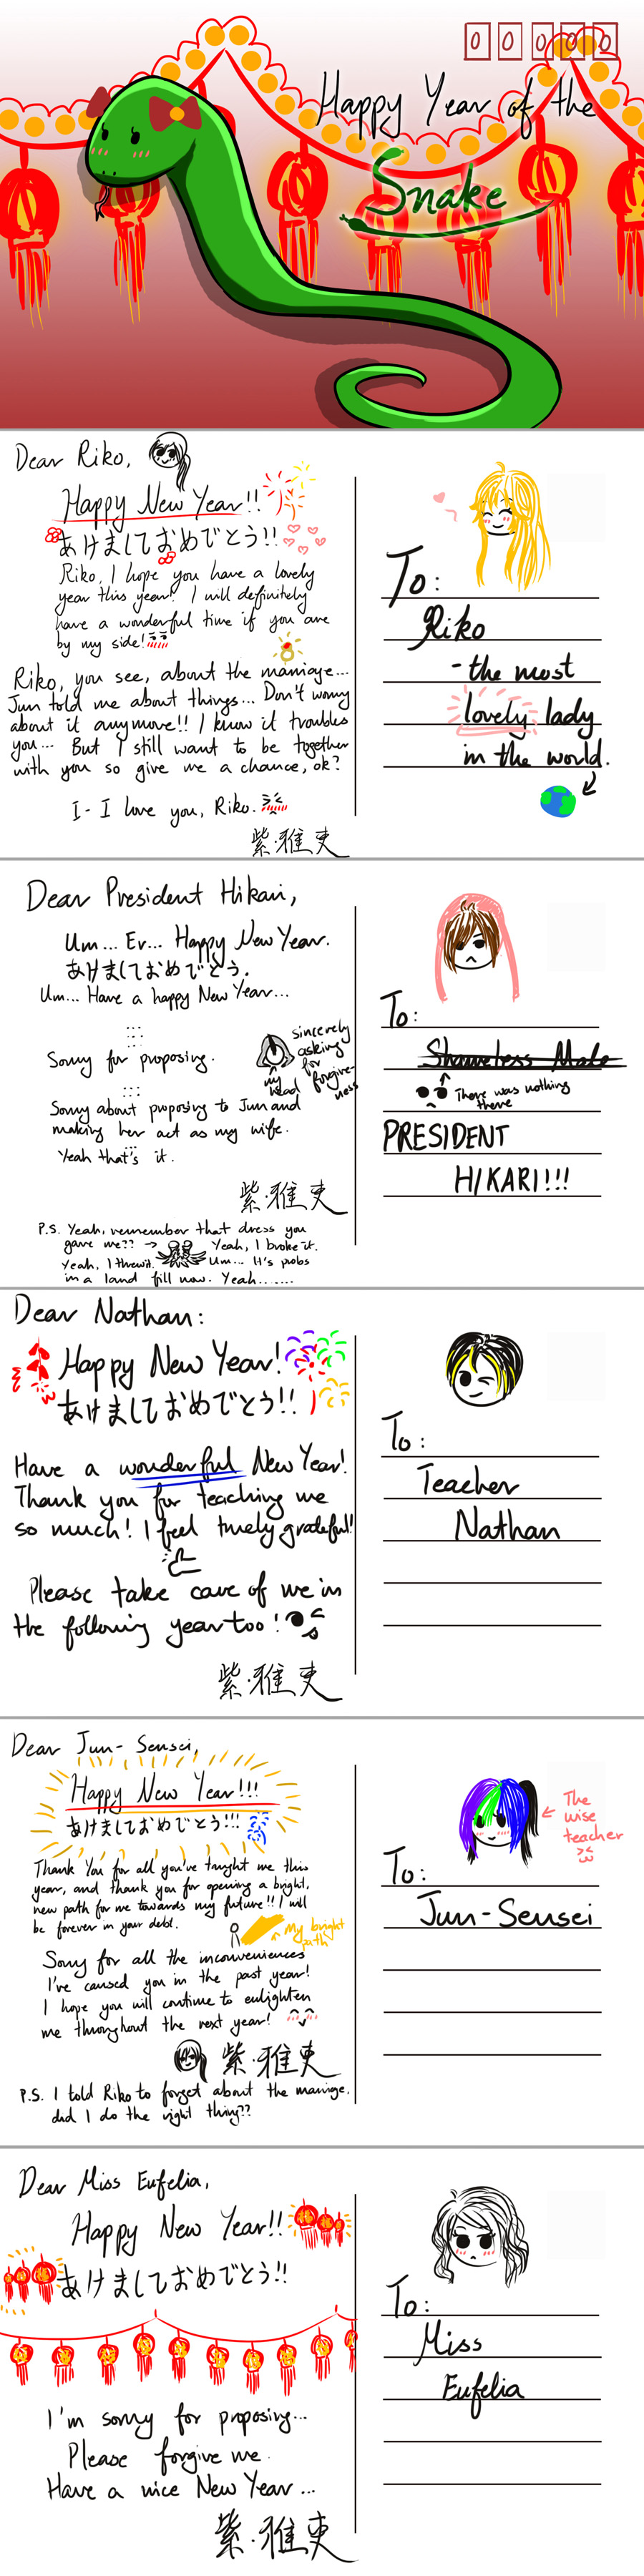 0 0 0 0 0
Happy Year of the
Snake
Dear Riko,
Happy New Year!!
あけましておめでとう!!
Riko, I hope you have a lovely
year this year! I will definitely
have a wonderful time if you are
by my side!
Riko, you see, about the marriage...
Jun told me about things... Don't worry
about it anymore!! I know it troubles
you... But I still want to be together
with you so give me a chance, ok?
I- I love you, Riko.
紫·雅吏
To:
Riko
- the most
lovely lady
in the world.
Dear President Hikari,
Um... Er... Happy New Year.
あけましておめでとう.
Um... Have a happy New Year...
Sorry for proposing.
my head
sincerely
asking
for
forgive-
ness
Sorry about proposing to Jun and
making her act as my wife.
Yeah that's it.
紫·雅吏
P.S. Yeah, remember that dress you
gave me?? → Yeah, I broke it.
Yeah, I threw it. Um... It's probs
in a land fill now. Yeah.......
To:
Shameless Male
There was nothing
there
PRESIDENT
HIKARI!!!
Dear Nathan:
Happy New Year!
あけましておめでとう!!
Have a wonderful New Year!
Thank you for teaching me
so much! I feel truely grateful!
Please take care of me in
the following year too!
紫·雅吏
To:
Teacher
Nathan
Dear Jun-Sensei,
Happy New Year!!!
あけましておめでとう!!!
Thank You for all you've taught me this
year, and thank you for opening a bright,
new path for me towards my future!! I will
be forever in your debt.
My bright
path
Sorry for all the inconveniences
I've caused you in the past year!
I hope you will continue to enlighten
me throughout the next year!
紫·雅吏
P.S. I told Riko to forget about the marriage.
did I do the right thing??
The
wise
teacher
To:
Jun-Sensei
Dear Miss Eufelia,
Happy New Year!!
あけましておめでとう!!
I'm sorry for proposing...
Please forgive me.
Have a nice New Year...
紫·雅吏
To:
Miss
Eufelia